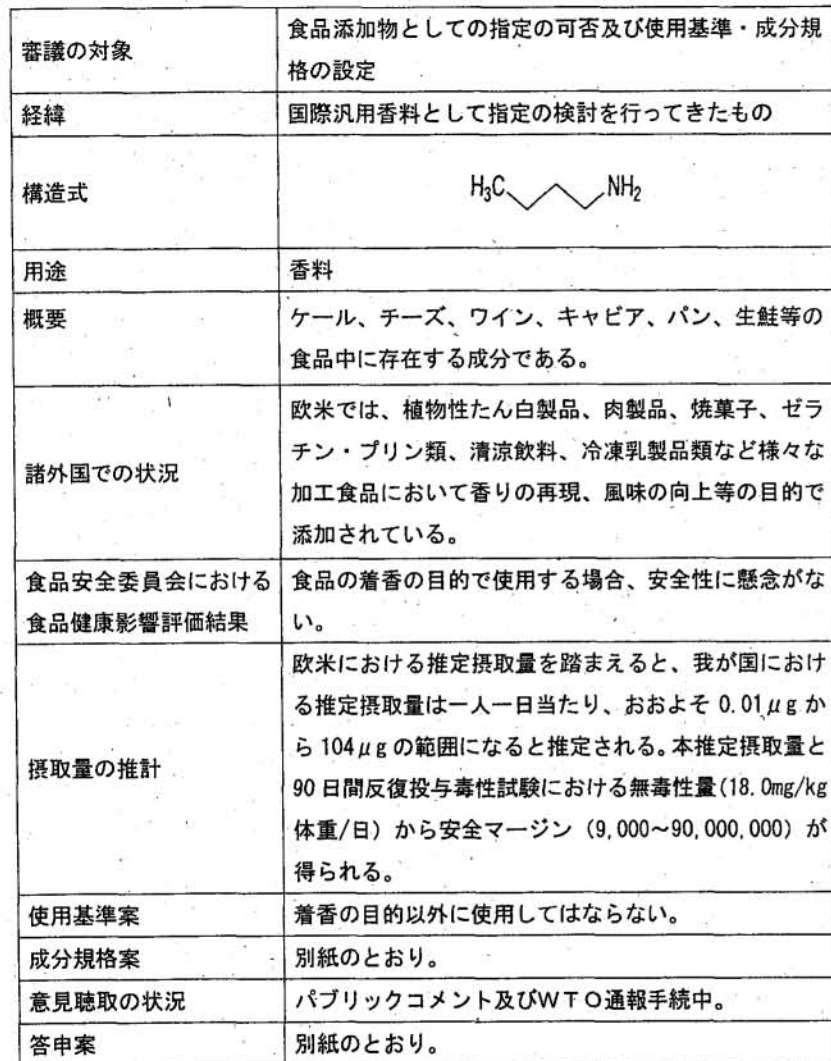 審議の対象
食品添加物としての指定の可否及び使用基準・成分規
格の設定
経緯
国際汎用香料として指定の検討を行ってきたもの
構造式
H₃C NH₂
用途
香料
概要
ケール、チーズ、ワイン、キャビア、パン、生鮭等の
食品中に存在する成分である。
諸外国での状況
欧米では、植物性たん白製品、肉製品、焼菓子、ゼラ
チン・プリン類、清涼飲料、冷凍乳製品類など様々な
加工食品において香りの再現、風味の向上等の目的で
添加されている。
食品安全委員会における
食品健康影響評価結果
食品の着香の目的で使用する場合、安全性に懸念がな
い。
摂取量の推計
欧米における推定摂取量を踏まえると、我が国におけ
る推定摂取量は一人一日当たり、おおよそ 0.01μg か
ら 104μg の範囲になると推定される。本推定摂取量と
90 日間反復投与毒性試験における無毒性量(18.0mg/kg
体重/日) から安全マージン (9,000~90,000,000) が
得られる。
使用基準案
着香の目的以外に使用してはならない。
成分規格案
別紙のとおり。
意見聴取の状況
パブリックコメント及びWTO通報手続中。
答申案
別紙のとおり。